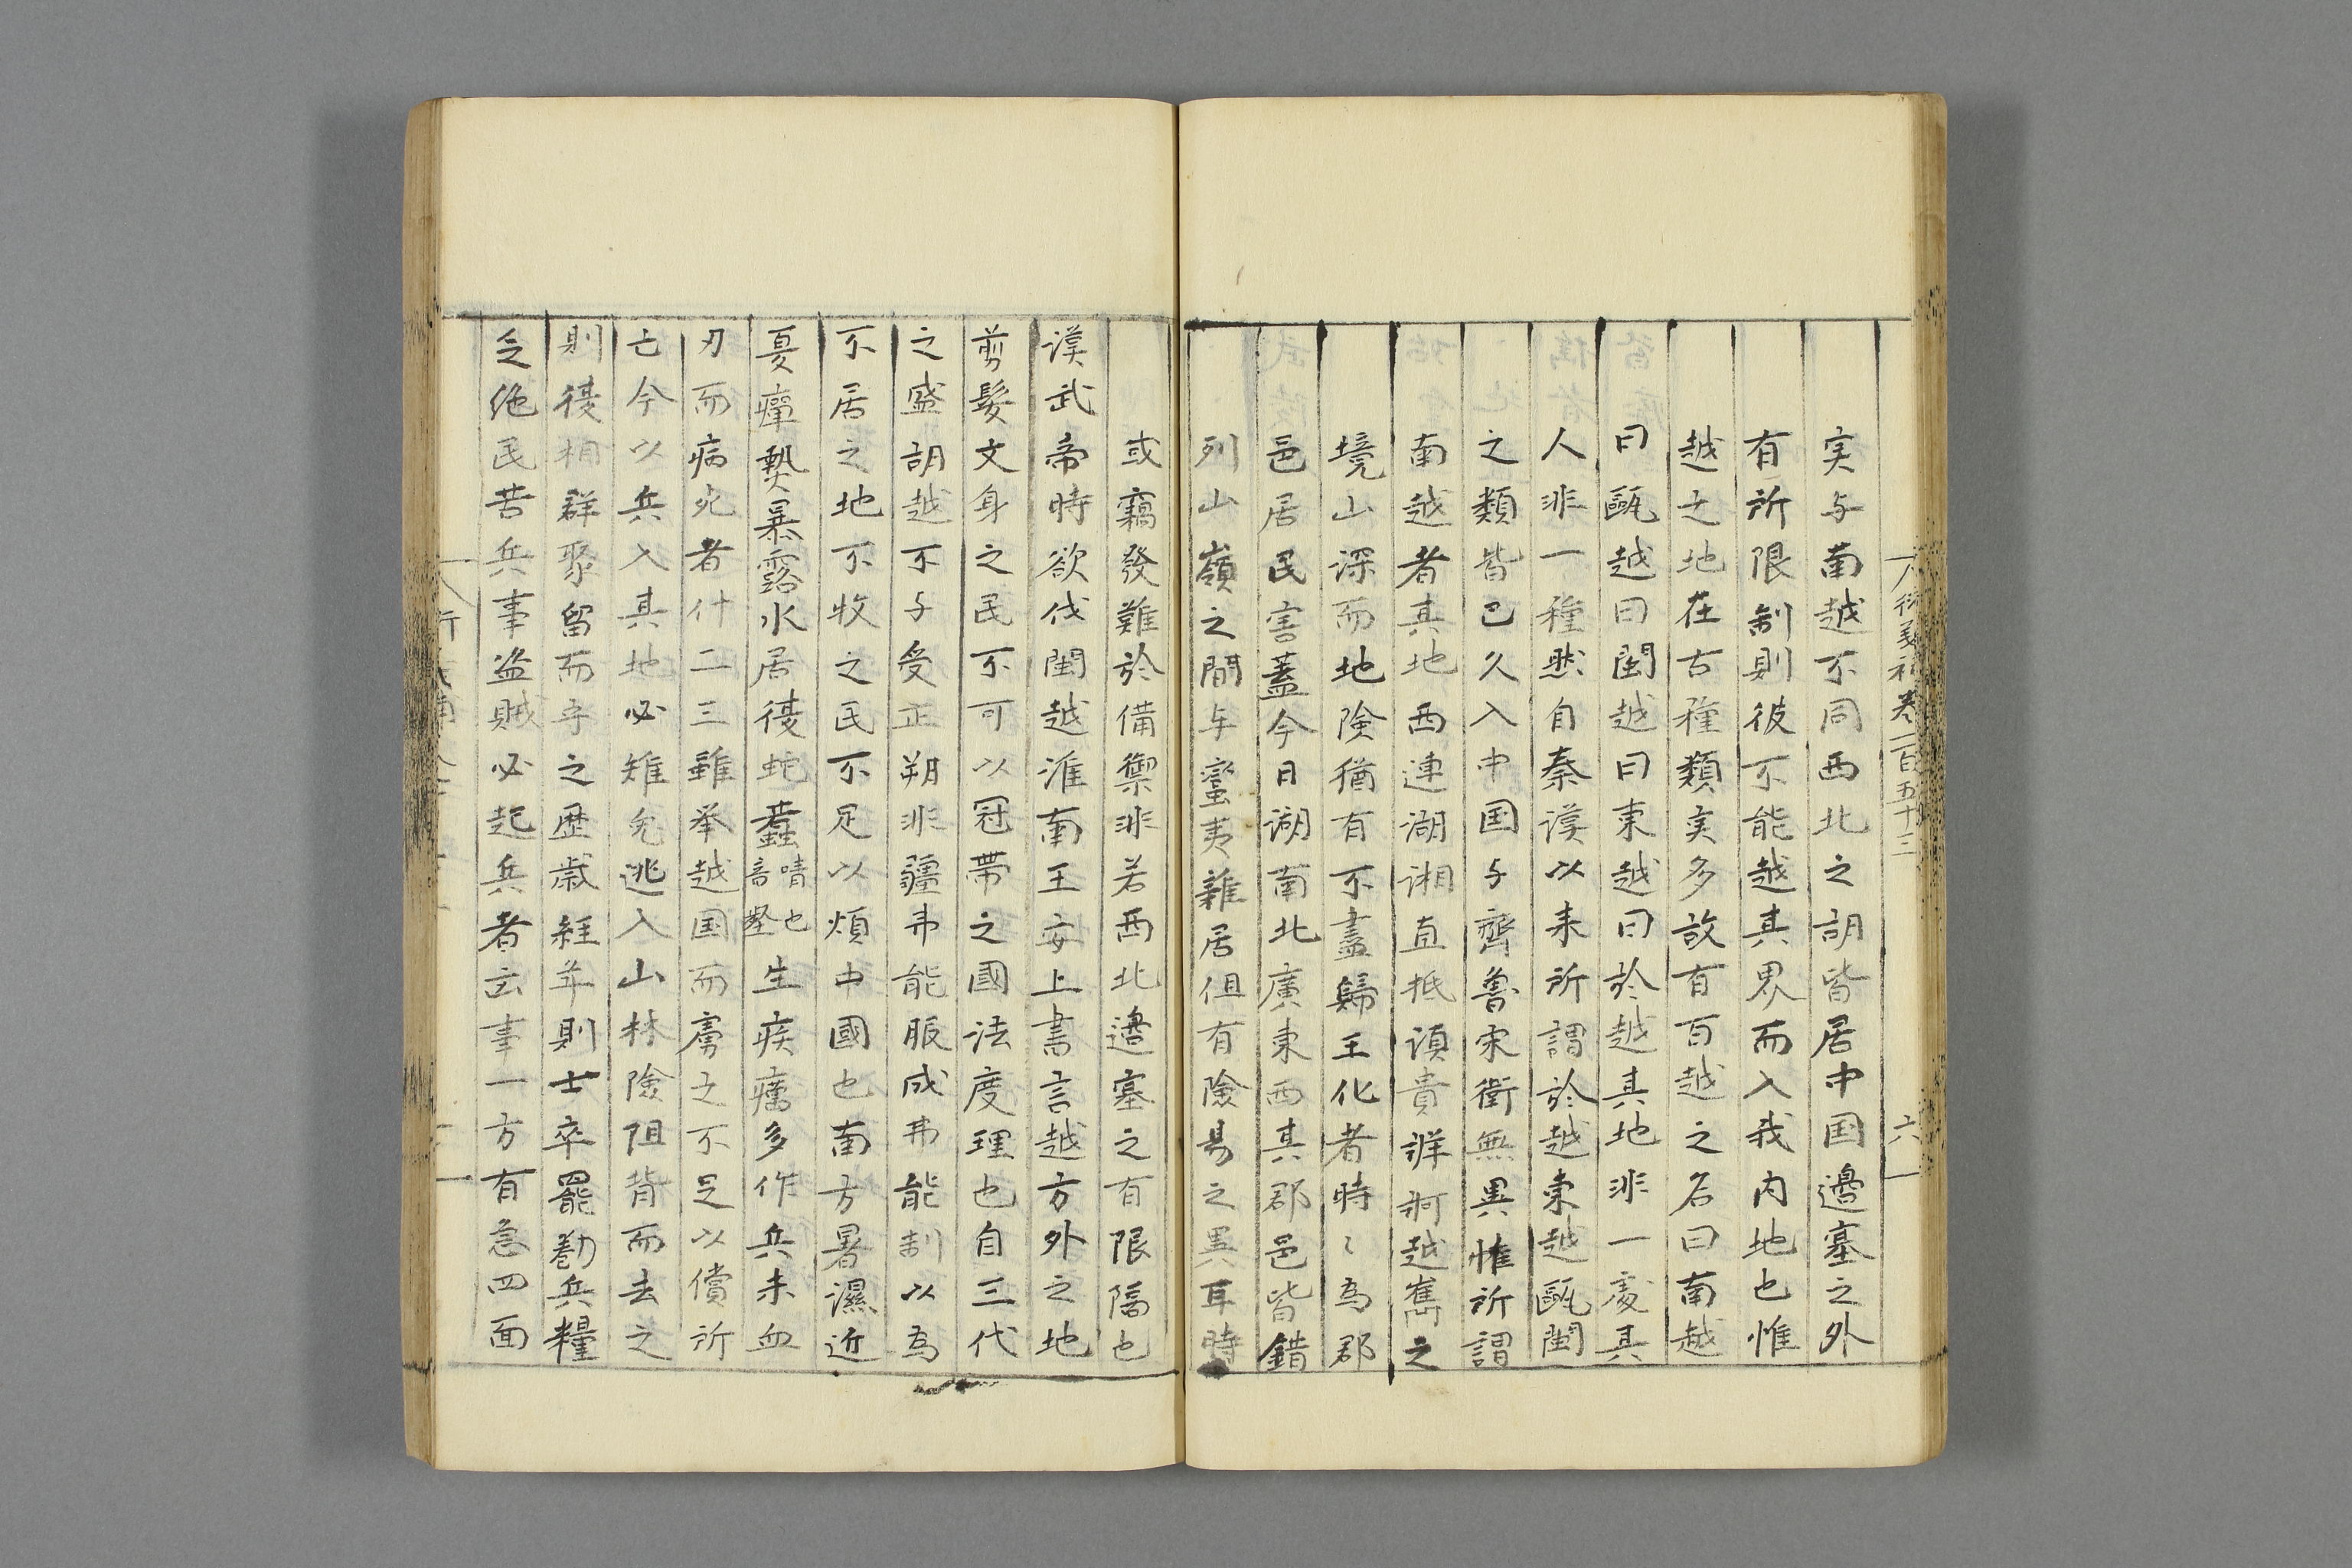 衍義補卷一百五十三 六
実与南越不同西北之胡皆居中国邊塞之外
有所限制則彼不能越其界而入我内地也惟
越之地在古種類実多故有百越之名曰南越
曰甌越曰閩越曰東越曰於越其地非一處其
人非一種然自秦漢以来所謂於越東越甌閩
之類皆已久入中国与齊魯宋衛無異惟所謂
南越者其地西連湖湘直抵滇貴牂牁越嶲之
境山深而地険猶有不盡歸王化者時〻為郡
邑居民害蓋今日湖南北廣東西其郡邑皆錯
列山嶺之間与蛮夷雜居但有險易之異耳時
或竊發難於備禦非若西北邊塞之有限隔也
漢武帝時欲伐閩越淮南王安上書言越方外之地
剪髮文身之民不可以冠帶之國法度理也自三代
之盛胡越不与受正朔非疆弗能服成弗能制以為
不居之地不牧之民不足以煩中國也南方暑濕近
夏癉熱暴露水居蝮蛇蠚音啨蠚也生疾癘多作兵未血
刃而病死者什二三雖举越国而虜之不足以償所
亡今以兵入其地必雉兔逃入山林險阻背而去之
則復相群聚留而守之歴歳経年則士卒罷勌兵糧
乏絶民苦兵事盗賊必起兵者凶事一方有急四面